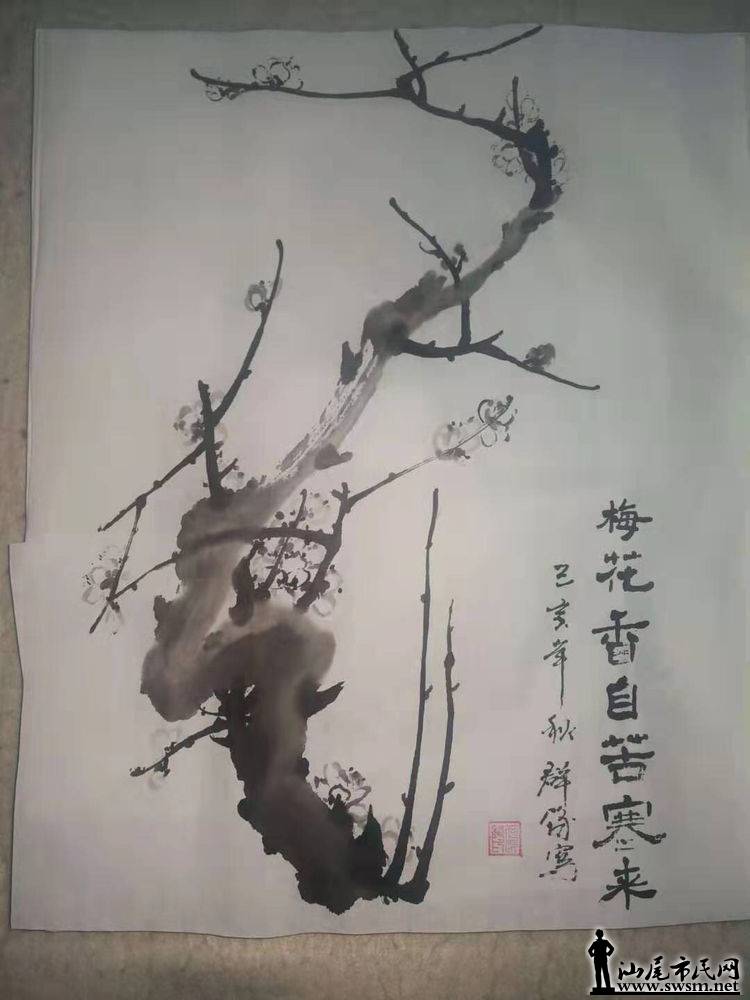 梅花香自苦寒来
己亥年秋群偈寫
汕尾市民网
www.swsm.net